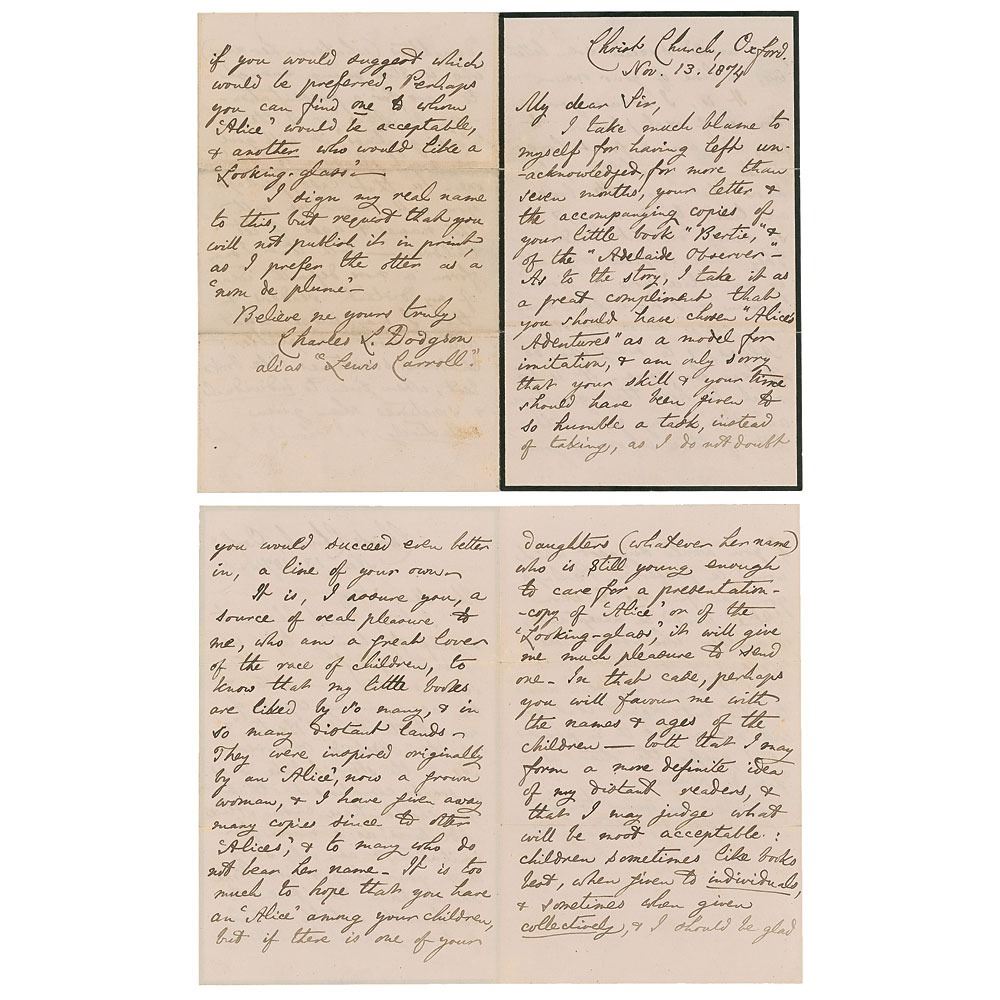 Christ Church, Oxford.
Nov. 13. 1874
My dear Sir,
I take much blame to
myself for having left un-
-acknowledged, for more than
seven months, your letter &
the accompanying copies of
your little book "Bertie," &
of the "Adelaide Observer" -
As to the story, I take it as
a great compliment that
you should have chosen "Alice's
Adentures" as a model for
imitation, & am only sorry
that your skill & your time
should have been given to
so humble a task, instead
of taking, as I do not doubt
you would succeed even better
in, a line of your own -
It is, I assure you, a
source of real pleasure to
me, who am a great lover
of the race of children, to
know that my little books
are liked by so many, & in
so many distant lands -
They were inspired originally
by an 'Alice', now a grown
woman, & I have given away
many copies since to other
'Alices', & to many who do
not bear her name - It is too
much to hope that you have
an 'Alice' among your children,
but if there is one of your
daughters (whatever her name)
who is still young enough
to care for a presentation-
-copy of 'Alice' or of the
'Looking-glass', it will give
me much pleasure to send
one - In that case, perhaps
you will favour me with
the names & ages of the
children — both that I may
form a more definite idea
of my distant readers, &
that I may judge what
will be most acceptable :
children sometimes like books
best, when given to individuals,
& sometimes when given
collectively, & I should be glad
if you would suggest which
would be preferred. Perhaps
you can find one to whom
'Alice' would be acceptable,
& another who would like a
'Looking-glass' -
I sign my real name
to this, but request that you
will not publish it in print,
as I prefer the other as a
'nom de plume' -
Believe me yours truly
Charles L. Dodgson
alias "Lewis Carroll."